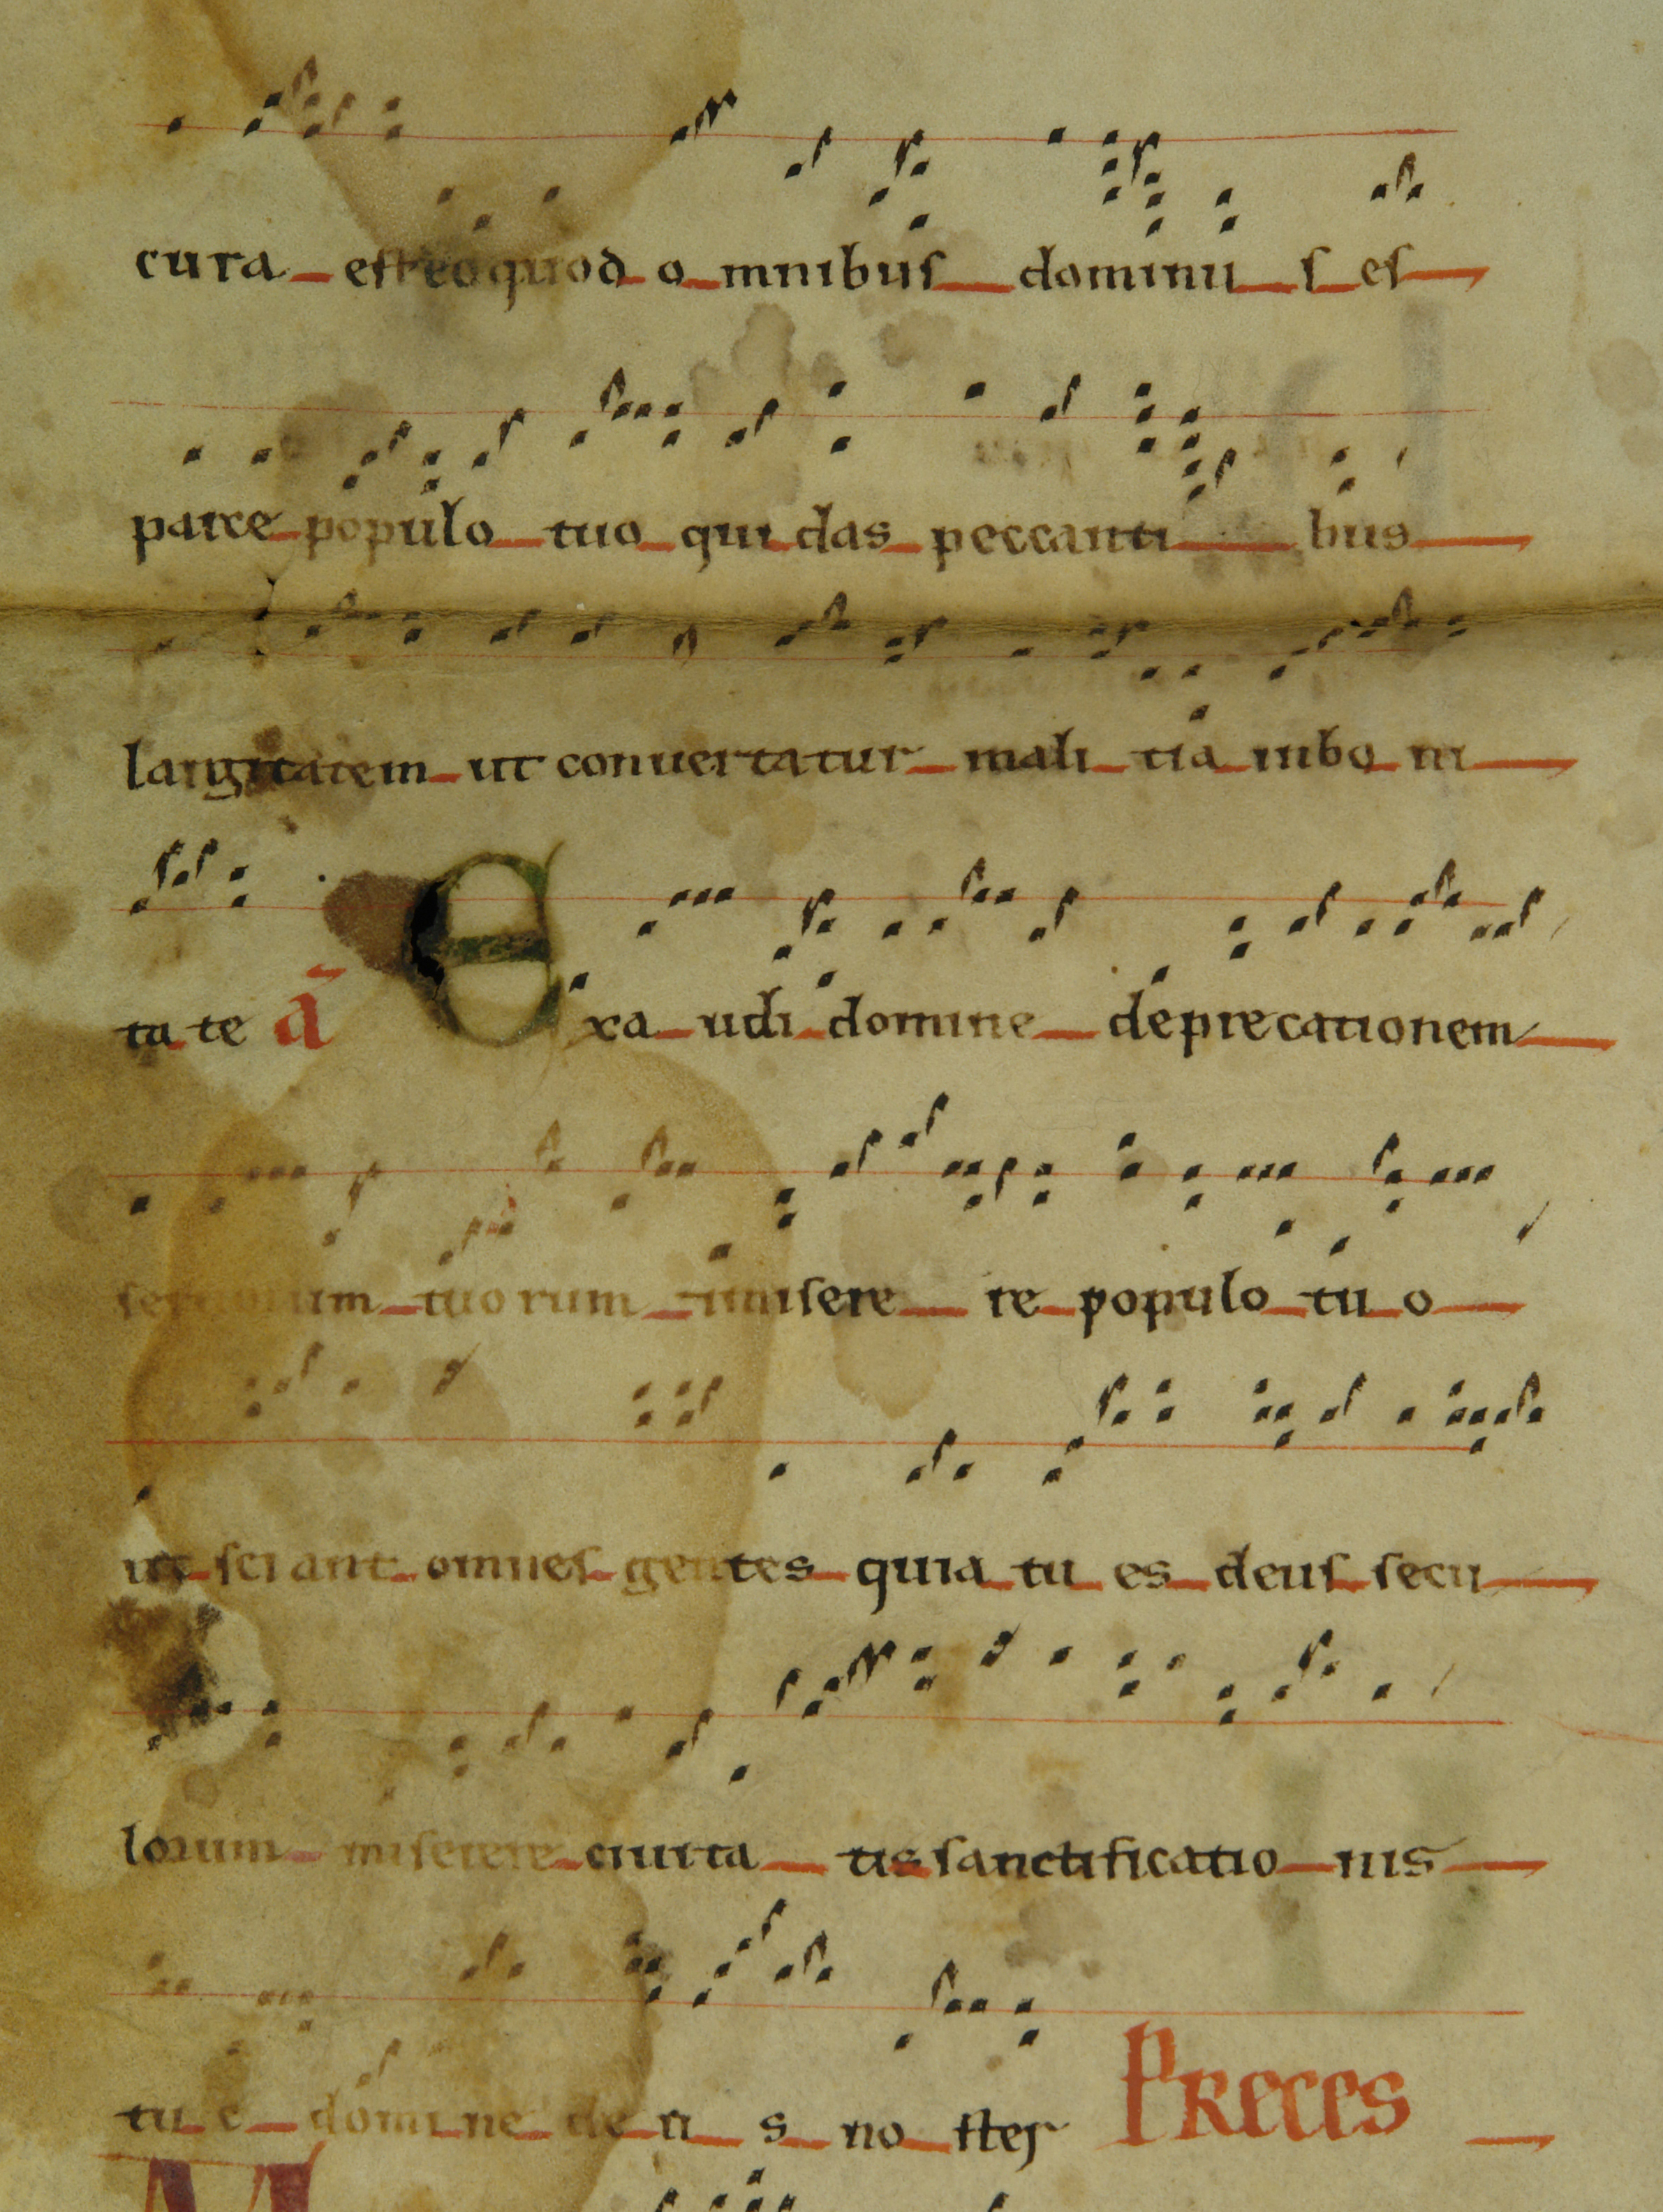 cura est eo quod o mnibus dominu s es
parce populo tuo qui das peccanti bus
largitatem ut conuertatur mali tia inbo ni
ta te a̅ Exa udi domine deprecationem
seruorum tuorum misere re populo tu o
ut sciant omnes gentes quia tu es deus secu
lorum miserere ciuita tis sanctificatio nis
tu e domine de u s no ster PReces